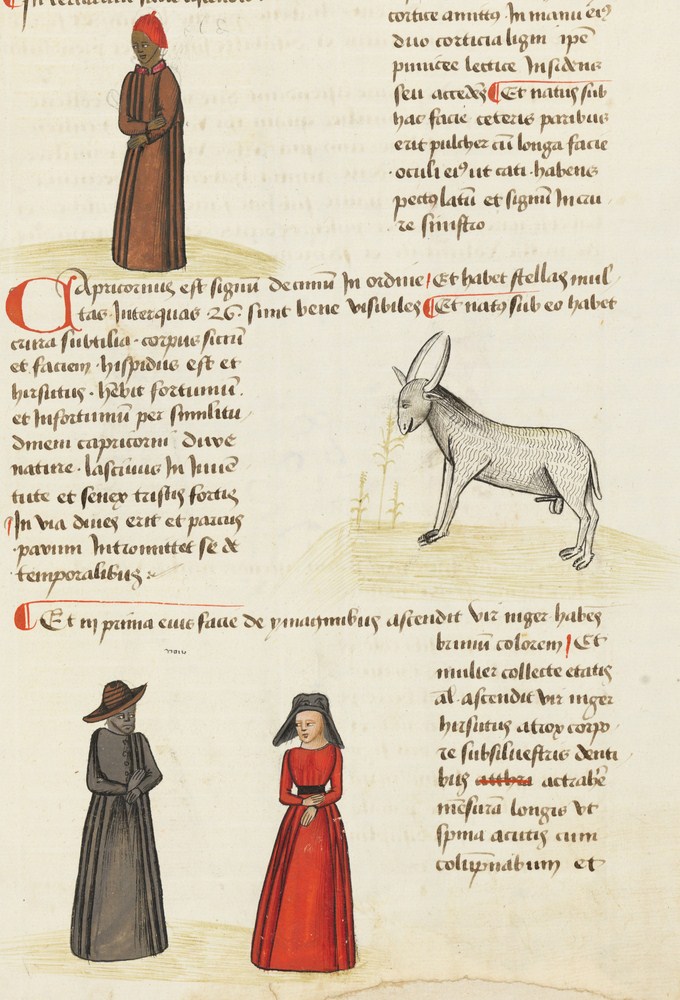 cortice amittꝰ. In manu eiꝰ
duo corticia ligni ipe
seu accedes ¶ Et natus sub
hac facie ceteris paribus
erit pulcher cū longa facie
oculi eiꝰ ut cati · habens
pectꝰ latū et signū in cru
re sinistro
Capricornus est signū decimū In ordine / Et habet stellas mul
tas · Interquas · 26 · sunt bene visibiles ¶ Et natꝰ sub eo habet
crura subtilia · corpus siccū
et faciem · hispidus est et
hirsutus · hēbit fortuniū ·
et Infortuniū per similitu
dinem capricorni Duplē
nature · lasciuus In Iuuē
tute et senex tristis fortis
¶ In via diues erit et parcus
parum Intromittet se de
temporalibus
¶ Et in prima eius facie de ymaginibus ascendit vir niger habēs
brunū colorem / Et
mulier collecte etatis
al · ascendit vir niger
hirsutus atrox corpo
re subsiluestris denti
bus
mēsurā longis vt
spina acutis cum
et